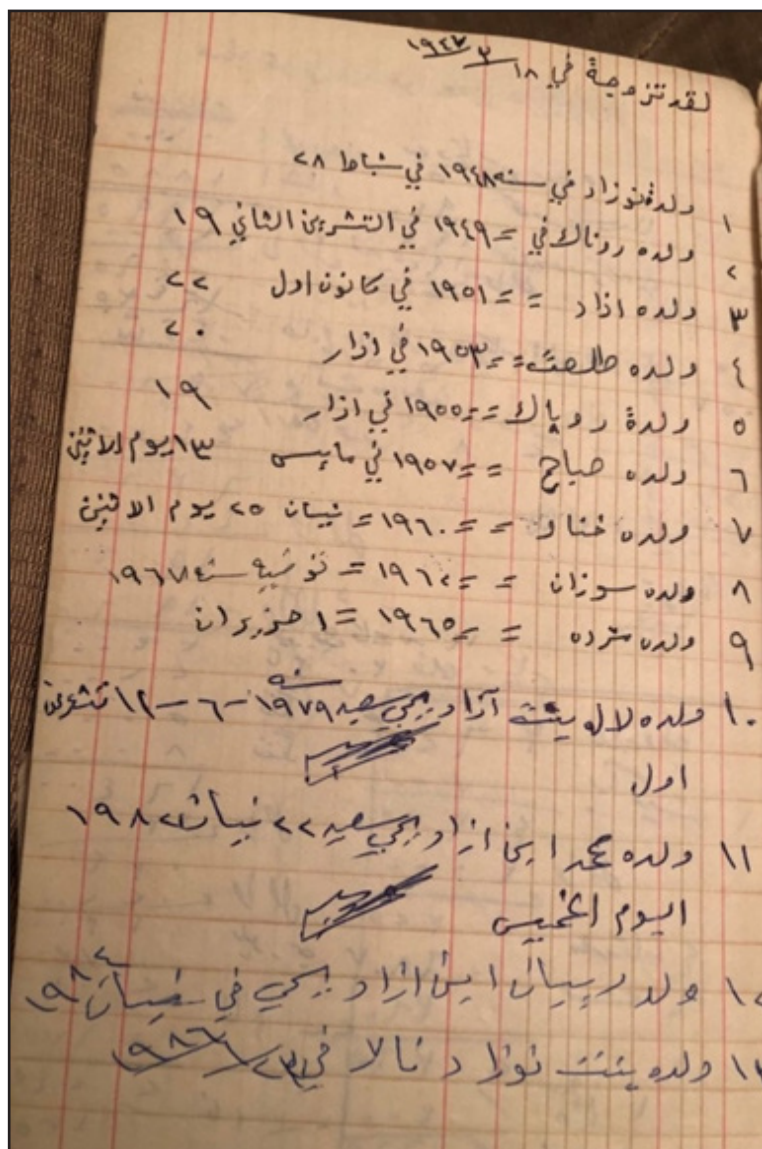 لقد تزوجة في ١٨/٣/١٩٤٧
١ ولدة نوزاد في سنه ١٩٤٨ في شباط ٢٨
٢ ولده روناك في = ١٩٤٩ في التشرين الثاني ١٩
٣ ولده ازاد = = ١٩٥١ في كانون اول ٢٢
٤ ولده طلعت = = ١٩٥٣ في اذار ٢٠
٥ ولدة روپاك = = ١٩٥٥ في اذار ١٩
٦ ولده صباح = = ١٩٥٧ في مايس ١٣ يوم الاثنين
٧ ولده خناو = = ١٩٦٠ = نيسان ٢٥ يوم الاثنين
٨ ولده سوزان = = ١٩٦٢ = سنة ١٩٦٧
٩ ولده = = ١٩٦٥ = ١ حزيران
١٠ ولده لاله بنت آزاد يحيى سعيد سنه ١٩٧٩ - ٦ - ١٢ تشرين
اول
١١ ولده محمد ابن ازاد يحيى سعيد ٢٢ نيسان ١٩٨٢
اليوم الخميس
١٢ ولد ابن ازاد يحيى في نيسان ١٩٨٤
١٣ ولده بنت نوزاد نالا في